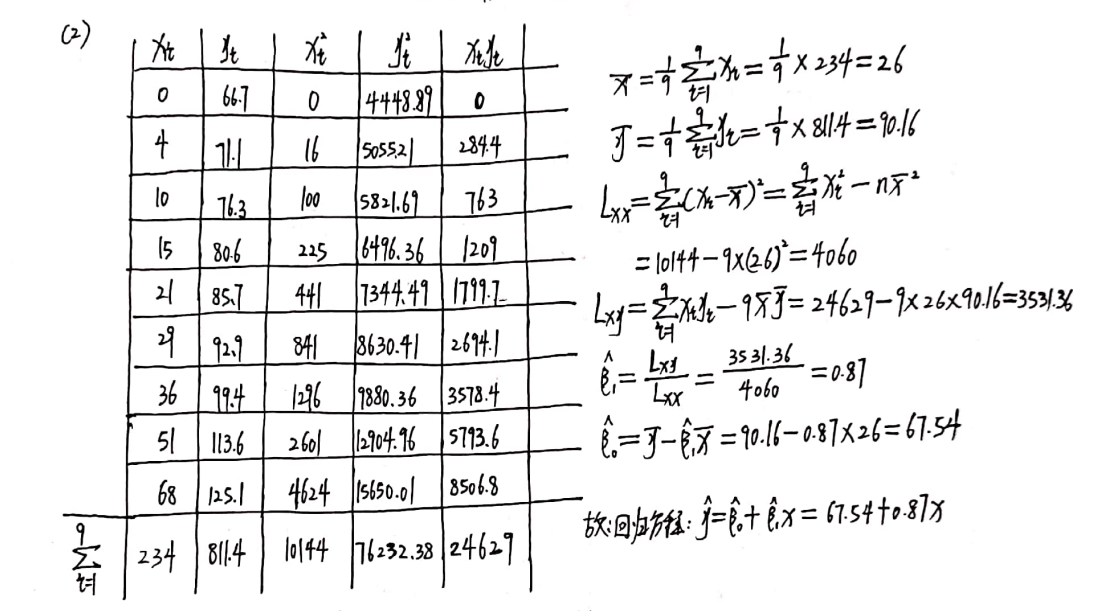 (2)
xₜ yₜ xₜ² yₜ² xₜyₜ
0 66.7 0 4448.89 0
4 71.1 16 5055.21 284.4
10 76.3 100 5821.69 763
15 80.6 225 6496.36 1209
21 85.7 441 7344.49 1799.7
29 92.9 841 8630.41 2694.1
36 99.4 1296 9880.36 3578.4
51 113.6 2601 12904.96 5793.6
68 125.1 4624 15650.01 8506.8
∑_{t=1}^{9} 234 811.4 10144 76232.38 24629
x̄ = 1/9 ∑_{t=1}^{9} xₜ = 1/9 × 234 = 26
ȳ = 1/9 ∑_{t=1}^{9} yₜ = 1/9 × 811.4 = 90.16
Lxx = ∑_{t=1}^{9} (xₜ - x̄)² = ∑_{t=1}^{9} xₜ² - nx̄²
= 10144 - 9×(26)² = 4060
Lxy = ∑_{t=1}^{9} xₜyₜ - 9x̄ȳ = 24629 - 9×26×90.16 = 3531.36
β̂₁ = Lxy/Lxx = 3531.36/4060 = 0.87
β̂₀ = ȳ - β̂₁x̄ = 90.16 - 0.87×26 = 67.54
故:回归方程: ŷ = β̂₀ + β̂₁x = 67.54 + 0.87x